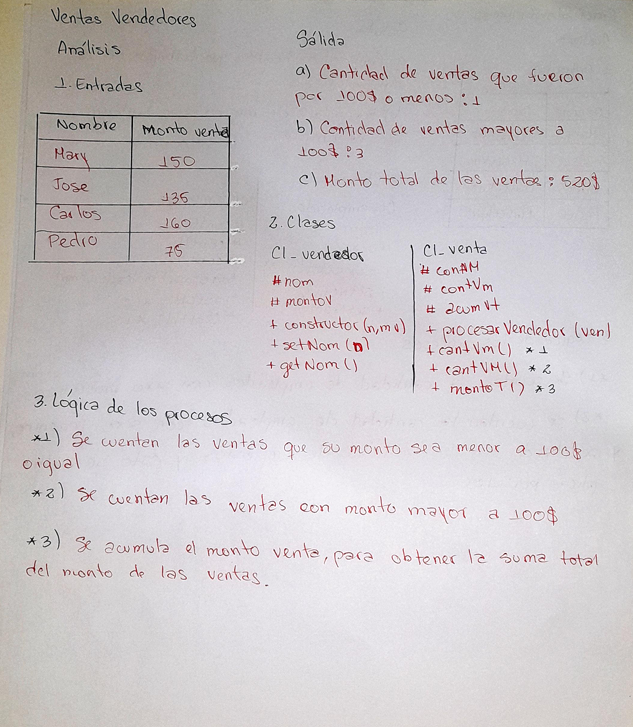 Ventas Vendedores
Análisis
1. Entradas
Nombre Monto venta
Mary 150
Jose 135
Carlos 160
Pedro 75
Sálida
a) Cantidad de ventas que fueron
por 100$ o menos : 1
b) Cantidad de ventas mayores a
100$ : 3
c) Monto total de las ventas : 520$
2. Clases
Cl_vendedor
# nom
# montov
+ constructor (n, mv)
+ setNom (n)
+ getNom ()
Cl_venta
# contM
# contVm
# acumVt
+ procesarVendedor (ven)
+ cantVm () *1
+ cantVM () *2
+ montoT () *3
3. Lógica de los procesos
*1) Se cuentan las ventas que su monto sea menor a 100$
o igual
*2) Se cuentan las ventas con monto mayor a 100$
*3) Se acumula el monto venta, para obtener la suma total
del monto de las ventas.